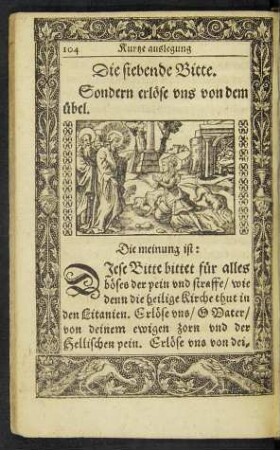 104 Kurtze außlegung
Die siebende Bitte.
Sondern erlöse vns von dem
übel.
Die meinung ist:
DIese Bitte bittet für alles
böses der pein vnd straffe/ wie
denn die heilige Kirche thut in
den Litanien. Erlöse vns/ O Vater/
von deinem ewigen zorn vnd der
Hellischen pein. Erlöse vns von dei-